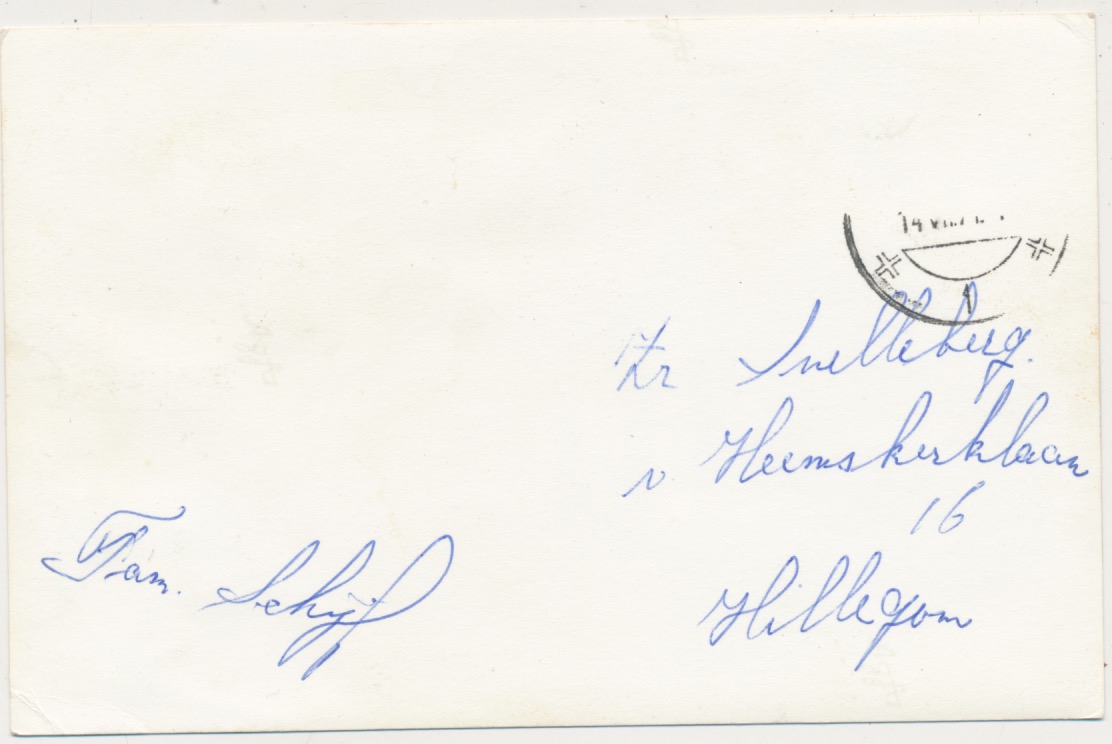 14 VIII.7
1
Zr Snelleberg.
v. Heemskerklaan
16
Hillegom
Fam. Schijf